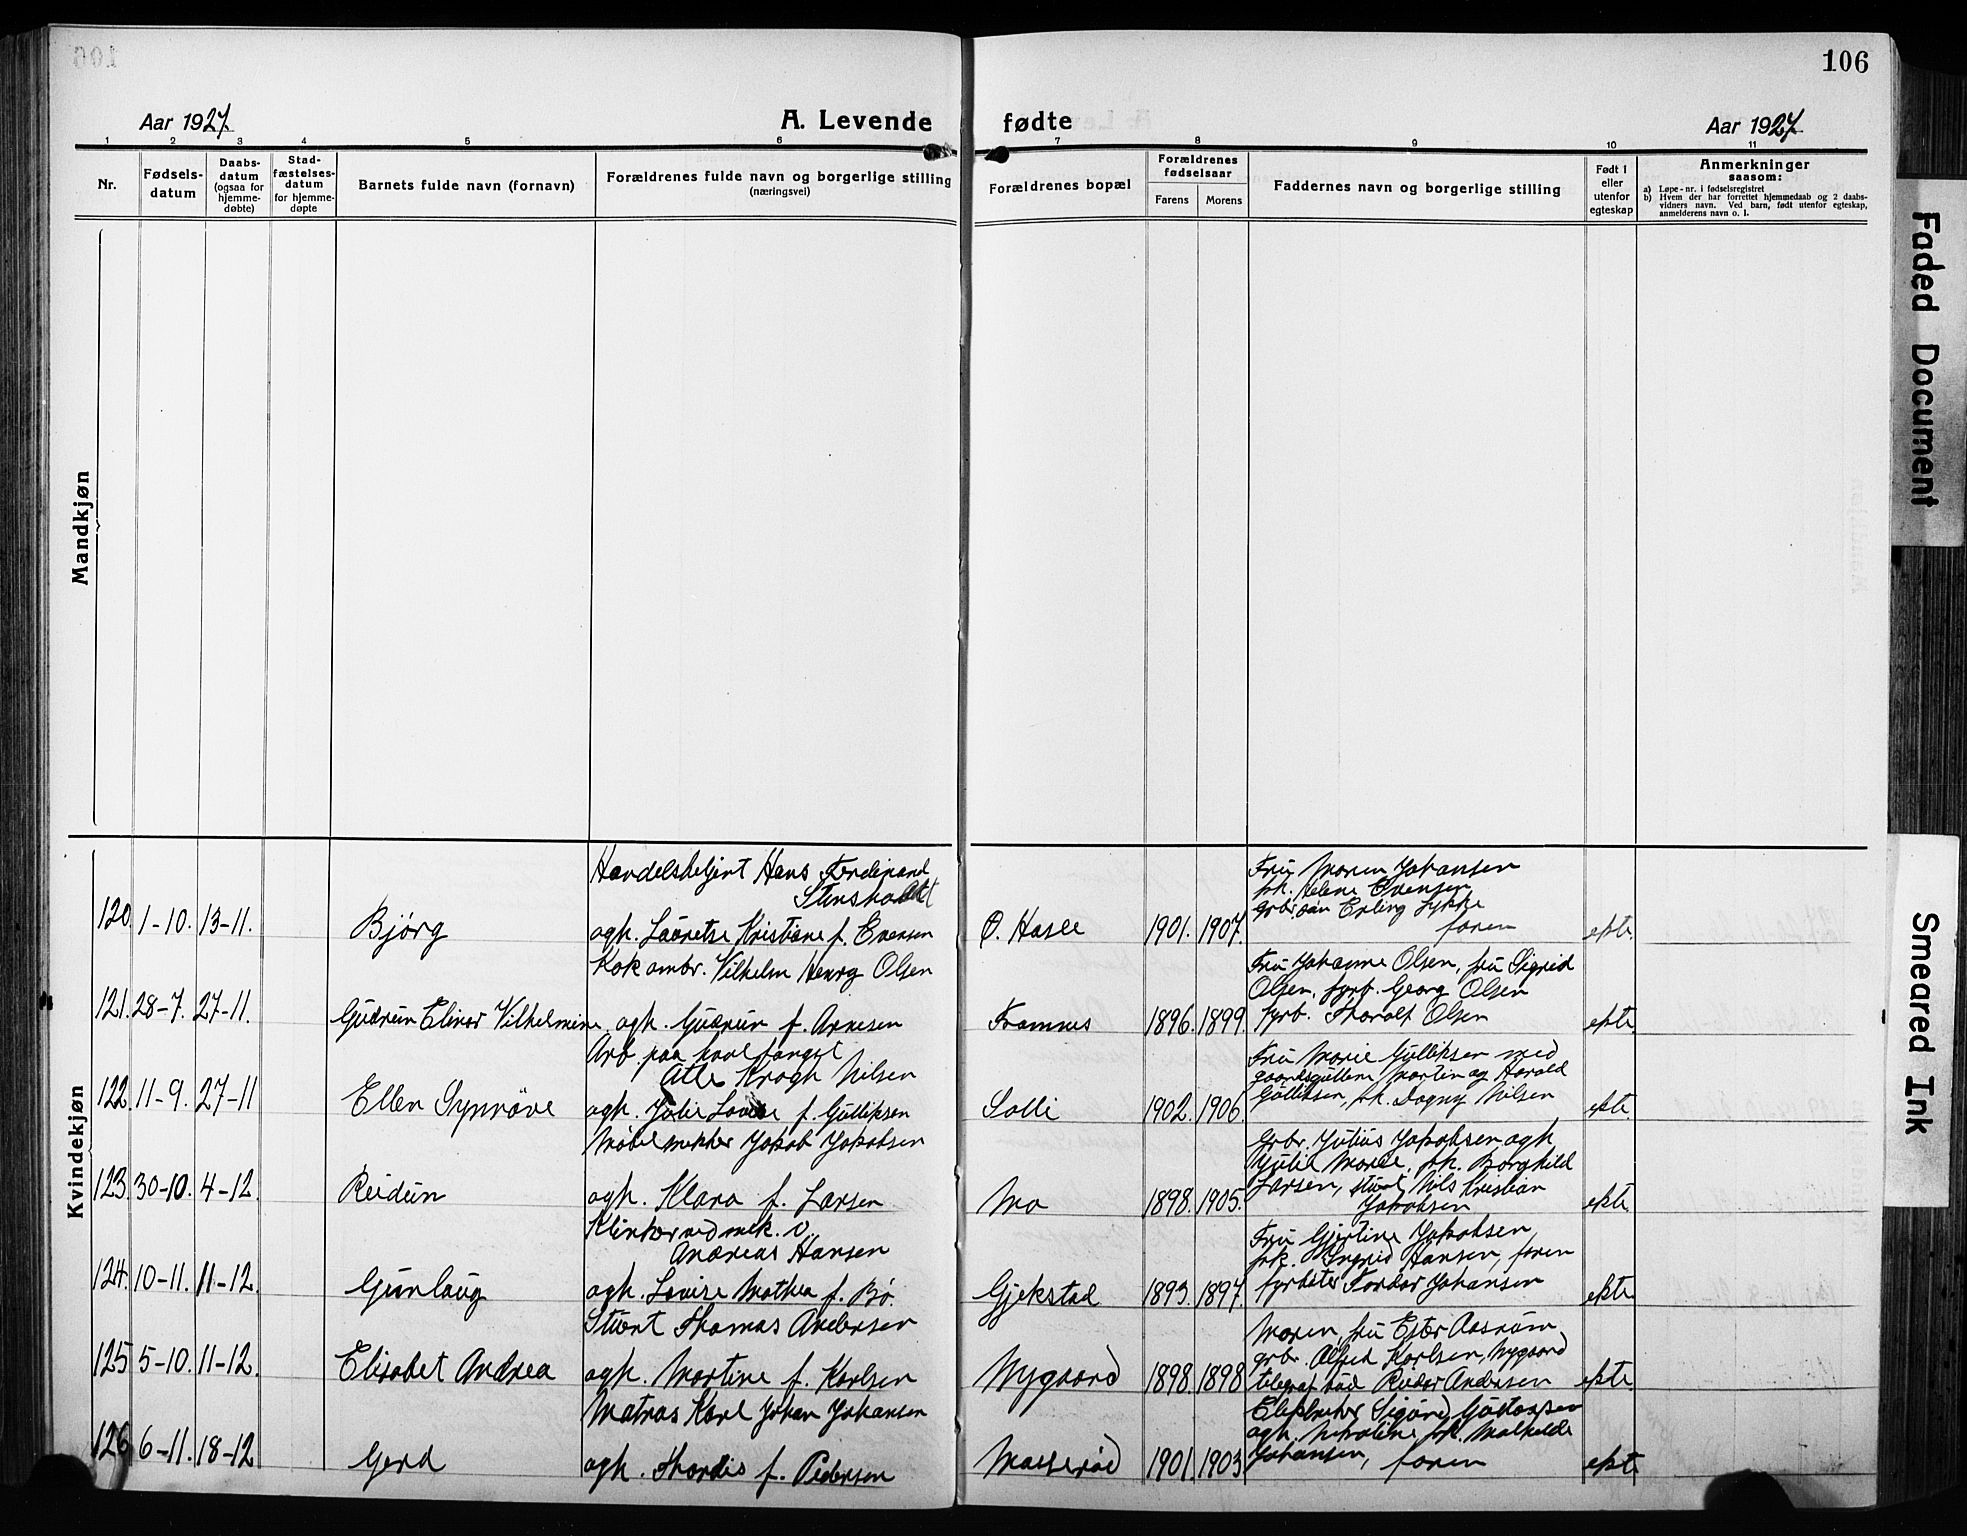 106
Aar 1927.
A. Levende fødte
Aar 1927
1 2 3 4 5 6 7 8 9 10 11
Nr.
Fødsels-
datum
Daabs-
datum
(ogsaa for
hjemme-
døbte)
Stad-
fæstelses-
datum
for hjemme-
døpte
Barnets fulde navn (fornavn)
Forældrenes fulde navn og borgerlige stilling
(næringsvei)
Forældrenes bopæl
Forældrenes
fødselsaar
Farens Morens
Faddernes navn og borgerlige stilling
Født i
eller
utenfor
egteskap
Anmerkninger
saasom:
a) Løpe-nr. i fødselsregistret
b) Hvem der har forrettet hjemmedaab og 2 daabs-
vidners navn. Ved barn, født utenfor egteskap,
anmelderens navn o. l.
Mandkjøn
Kvindekjøn
120. 1-10. 13-11.
Bjørg
Handelsbetjent Hans Ferdinand
Stensholt
agh. Lauretse Kristiane f. Evensen
Ø. Hasle
1901. 1907.
Fru Maren Johansen
frk. Helene Evensen
Erling Lykke
faren
ekte.
121. 28-7. 27-11.
Gudrun Elinor Vilhelmine
Kok ombr. Vilhelm Henry Olsen
agh. Gudrun f. Arnesen
Framnes
1896. 1899.
Fru Johanne Olsen, fru Sigrid
Olsen, fyrb. Georg Olsen
fyrb. Tharalf Olsen
ekte
122. 11-9. 27-11
Ellen Synnöve
Arb. paa hvalfangst
Atle Krogh Nilsen
agh. Julie Lovise f. Gulliksen
Solli
1902. 1906.
Fru Marie Gulliksen med
Martin og Harald
Gulliksen, frk. Dagny Nilsen
ekte.
123. 30-10. 4-12.
Reidun
Møbelsnekker Jakob Jakobsen
agh. Klara f. Larsen
Mo
1898. 1905.
Grbr. Julius Jakobsen agh
Julie Marie, frk. Borghild
Larsen, stuert Nils Kristian
Jakobsen
ekte.
124. 10-11. 11-12.
Gunlaug
Klinker ved mek. v.
Andreas Hansen
agh. Lovise Mathea f. Bø.
Gjekstad
1893. 1897.
Fru Gjertine Jakobsen
frk. Ingrid Hansen, faren
fyrbøter Fordar Johansen
ekte.
125 5-10. 11-12.
Elisabet Andrea
Stuert Thomas Andersen
agh. Martine f. Karlsen
Nygaard
1898. 1898
Moren, fru Ester Aasrum
grbr. Alfred Karlsen, Nygaard
telegrafbud Reidar Andersen
ekte.
126. 6-11. 18-12
Gerd
Matros Karl Johan Johansen
agh. Thordis f. Pedersen
Massesrød
1901. 1903
Sigurd Gustavsen
agh. Nikoline, frk. Mathilde
Johansen, faren
ekte
Faded Document
Smeared Ink